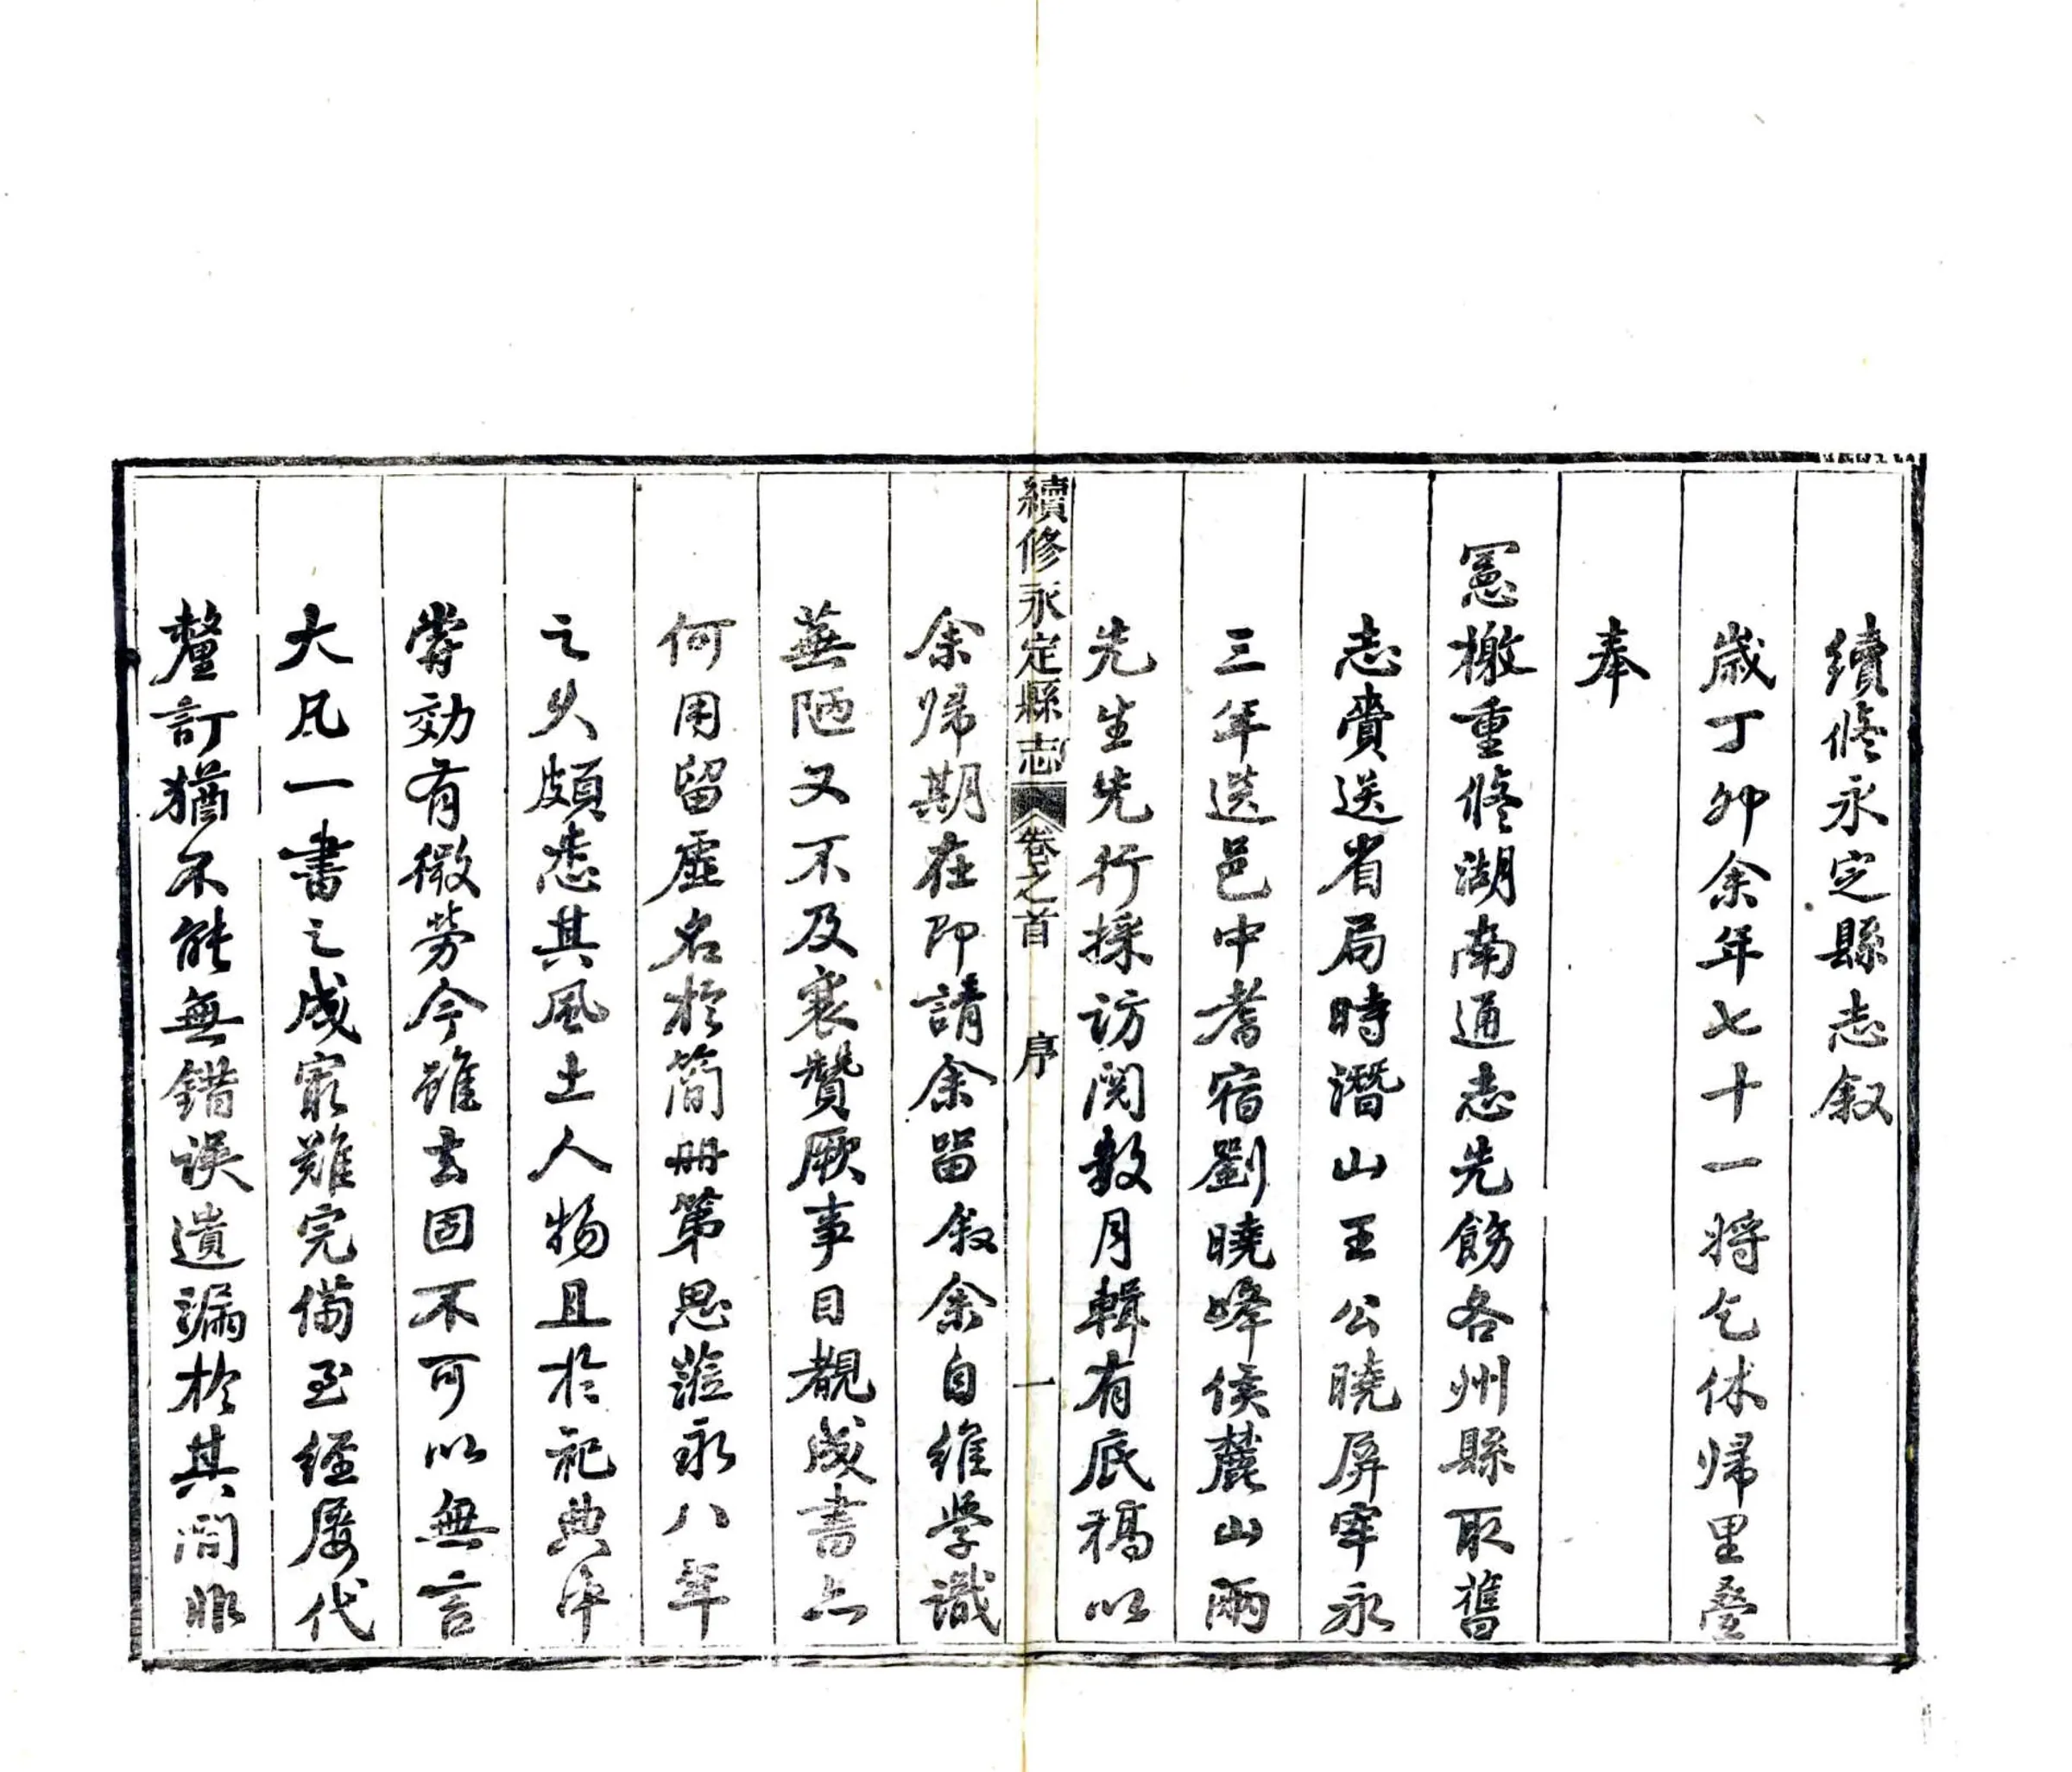 續修永定縣志叙
歲丁卯余年七十一將乞休歸里疊
奉
憲檄重修湖南通志先飭各州縣取舊
志賷送省局時潛山王公曉屏宰永
三年送邑中耆宿劉曉峰侯麓山兩
先生先行採訪閱數月輯有底稿以
續修永定縣志 卷之首 序 一
余歸期在即請余留叙余自維学識
蕪陋又不及襄贊厥事目覩成書亦
何用留虛名於簡册第思蒞永八年
之久頗悉其風土人物且於祀典中
嘗効有微勞今雖去固不可以無言
大凡一書之成宷難完備至經屡代
釐訂猶不能無錯误遺漏於其间非